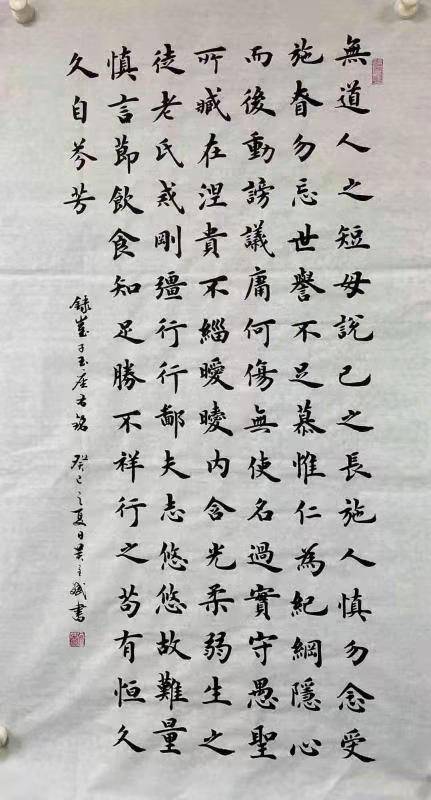 無道人之短毋說己之長施人慎勿念受
施昚勿忘世譽不足慕惟仁為紀綱隱心
而後動謗議庸何傷無使名過實守愚聖
所臧在涅貴不緇曖曖内含光柔弱生之
徒老氏戒剛彊行行鄙夫志悠悠故難量
慎言節飲食知足勝不祥行之苟有恒久
久自芬芳
錄崔子玉座右銘 癸巳之夏日吴斌書